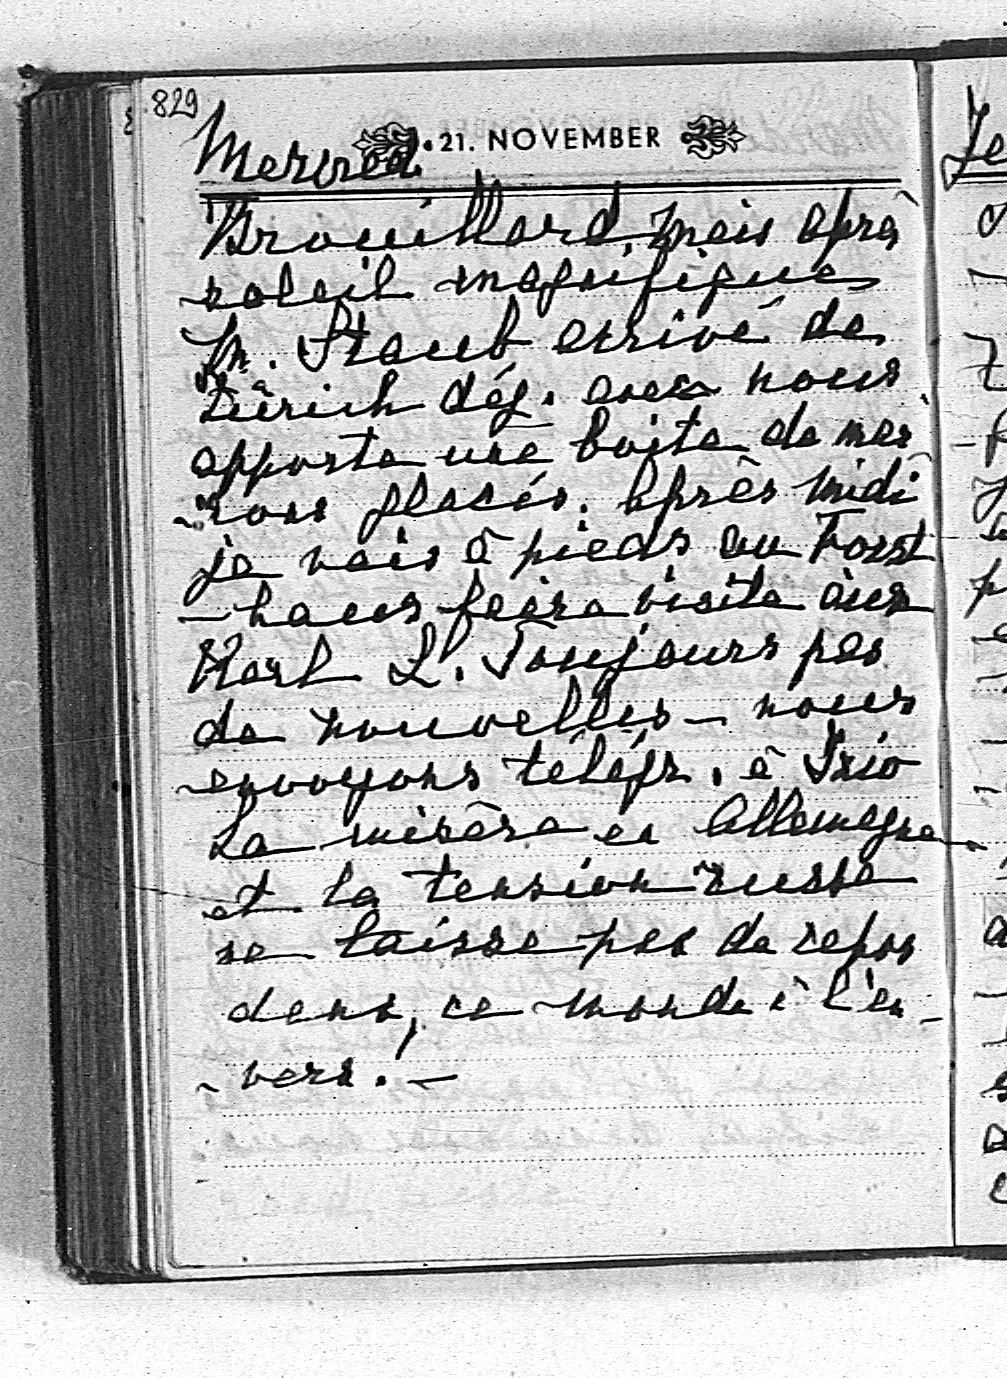 829
Mercred. 21. NOVEMBER
Brouillard, mais après
soleil magnifique
M. Straub arrivé de
Zürich déj. avec nous
apporte une boite de mar
rons glacés. Après midi
je vais à pieds au Forst
haus faire visite aux
Karl L. Toujours pas
de nouvelles – nous
envoyons télégr. à Trio
La misère en Allemagne
et la tension russe
ne laisse pas de repos
dans, ce monde à l'en-
vers. –